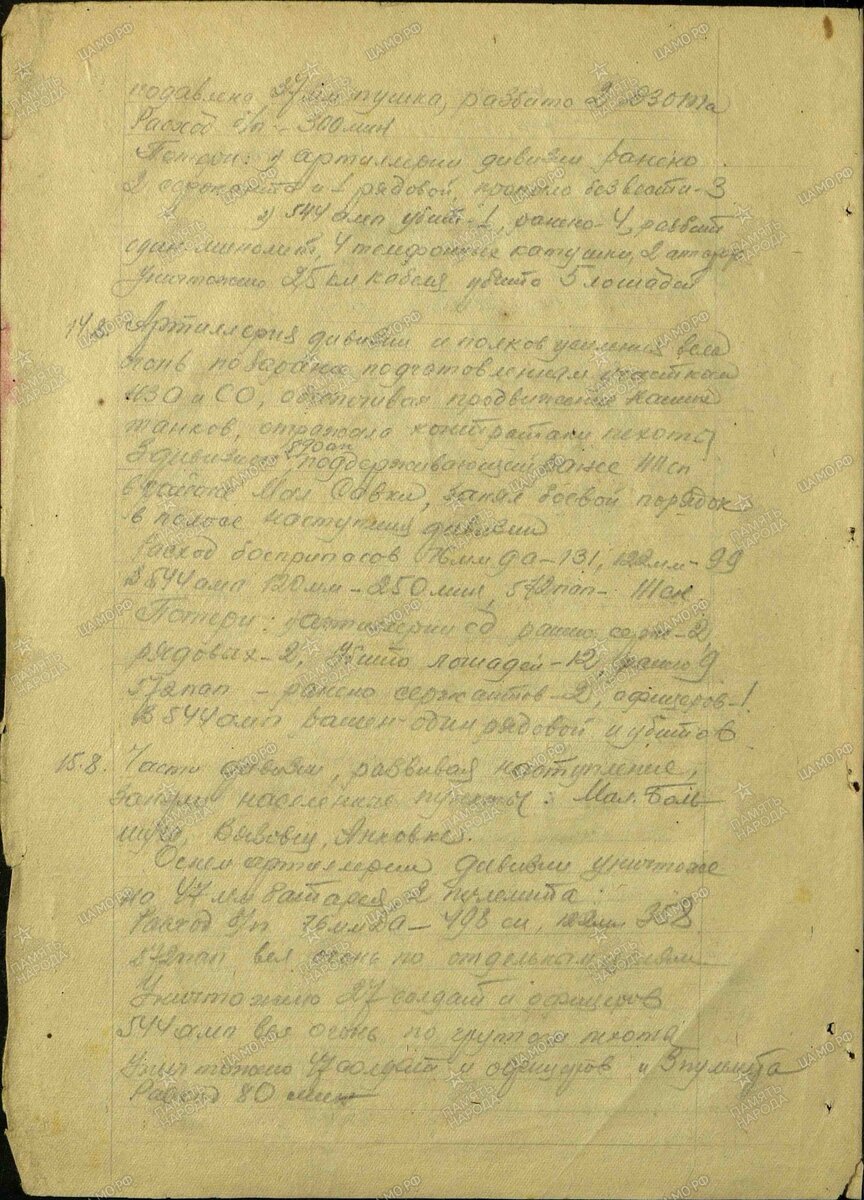 подавлено 37 мм пушка, разбито 2 ДЗОТа
Расход б/п - 300 мин
Потери: 1) артиллерии дивизии ранено
2 сержанта и 1 рядовой, пропало без вести - 3
2) 544 амп убит - 1, ранено - 4, разбит
один миномет, 4 телефонные катушки, 2
Уничтожено 25 км кабеля убито 5 лошадей
14.8. Артиллерия дивизии и полков усиления вела
огонь по заранее подготовленным участкам
НЗО и СО, обеспечивая продвижение наших
танков, отражала контратаки пехоты
3 дивизион 890 ап поддерживающий
в районе Мал Савки, занял боевой порядок
в полосе наступления дивизии
Расход боеприпасов 76 мм да - 131, 122 мм - 99
В 544 амп 120 мм - 250 мин, 572 пап -
Потери: артиллерии сд ранено серж - 2,
рядовых - 2, Убито лошадей - 12, ранено 9
572 пап - ранено сержантов - 2, офицеров - 1
В 544 амп ранен один рядовой и убитов
15.8. Части дивизии, развивая наступление,
заняли населенные пункты: Мал.
Анховка.
Огнем артиллерии дивизии уничтоже
но 47 мм батарея 2 пулемета
Расход б/п 76 мм да - 498 сн, 122 мм 358
572 пап вел огонь по отдельным целям
Уничтожено 27 солдат и офицеров
544 амп вел огонь по группам пехоты
Уничтожено 47 солдат и офицеров и 3 пулемета
Расход 80 мин